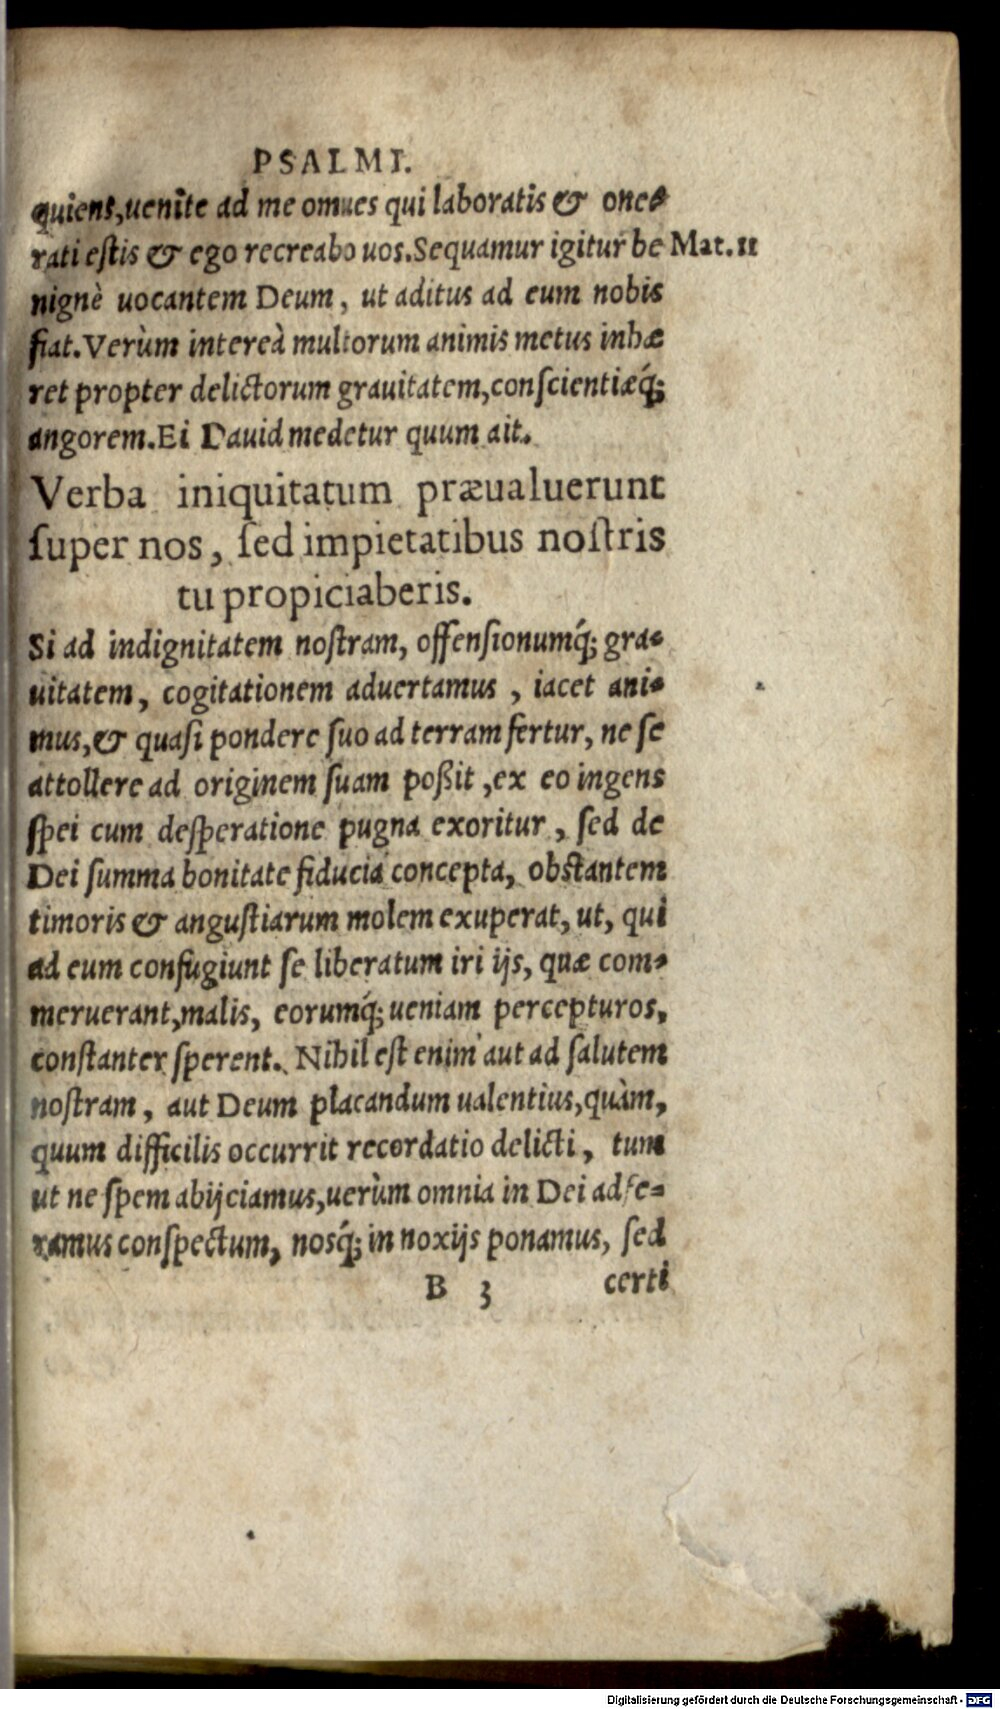 PSALMI.
quiens, uenite ad me omnes qui laboratis & one-
rati eſtis & ego recreabo uos. Sequamur igitur be Mat. 11
nignè uocantem Deum, ut aditus ad eum nobis
fiat. Verùm intereà multorum animis metus inhæ
ret propter delictorum grauitatem, conſcientiæq́;
angorem. Ei Dauid medetur quum ait.
Verba iniquitatum præualuerunt
ſuper nos, ſed impietatibus noſtris
tu propiciaberis.
Si ad indignitatem noſtram, offenſionumq́; gra-
uitatem, cogitationem aduertamus, iacet ani-
mus, & quaſi pondere ſuo ad terram fertur, ne ſe
attollere ad originem ſuam poßit, ex eo ingens
ſpei cum deſperatione pugna exoritur, ſed de
Dei ſumma bonitate fiducia concepta, obſtantem
timoris & anguſtiarum molem exuperat, ut, qui
ad eum confugiunt ſe liberatum iri ijs, quæ com-
meruerant, malis, eorumq́; ueniam percepturos,
conſtanter ſperent. Nihil eſt enim aut ad ſalutem
noſtram, aut Deum placandum ualentius, quàm,
quum difficilis occurrit recordatio delicti, tum
ut ne ſpem abijciamus, uerùm omnia in Dei adfe-
ramus conſpectum, nosq́; in noxijs ponamus, ſed
B 3 certi
Digitalisierung gefördert durch die Deutsche Forschungsgemeinschaft - DFG